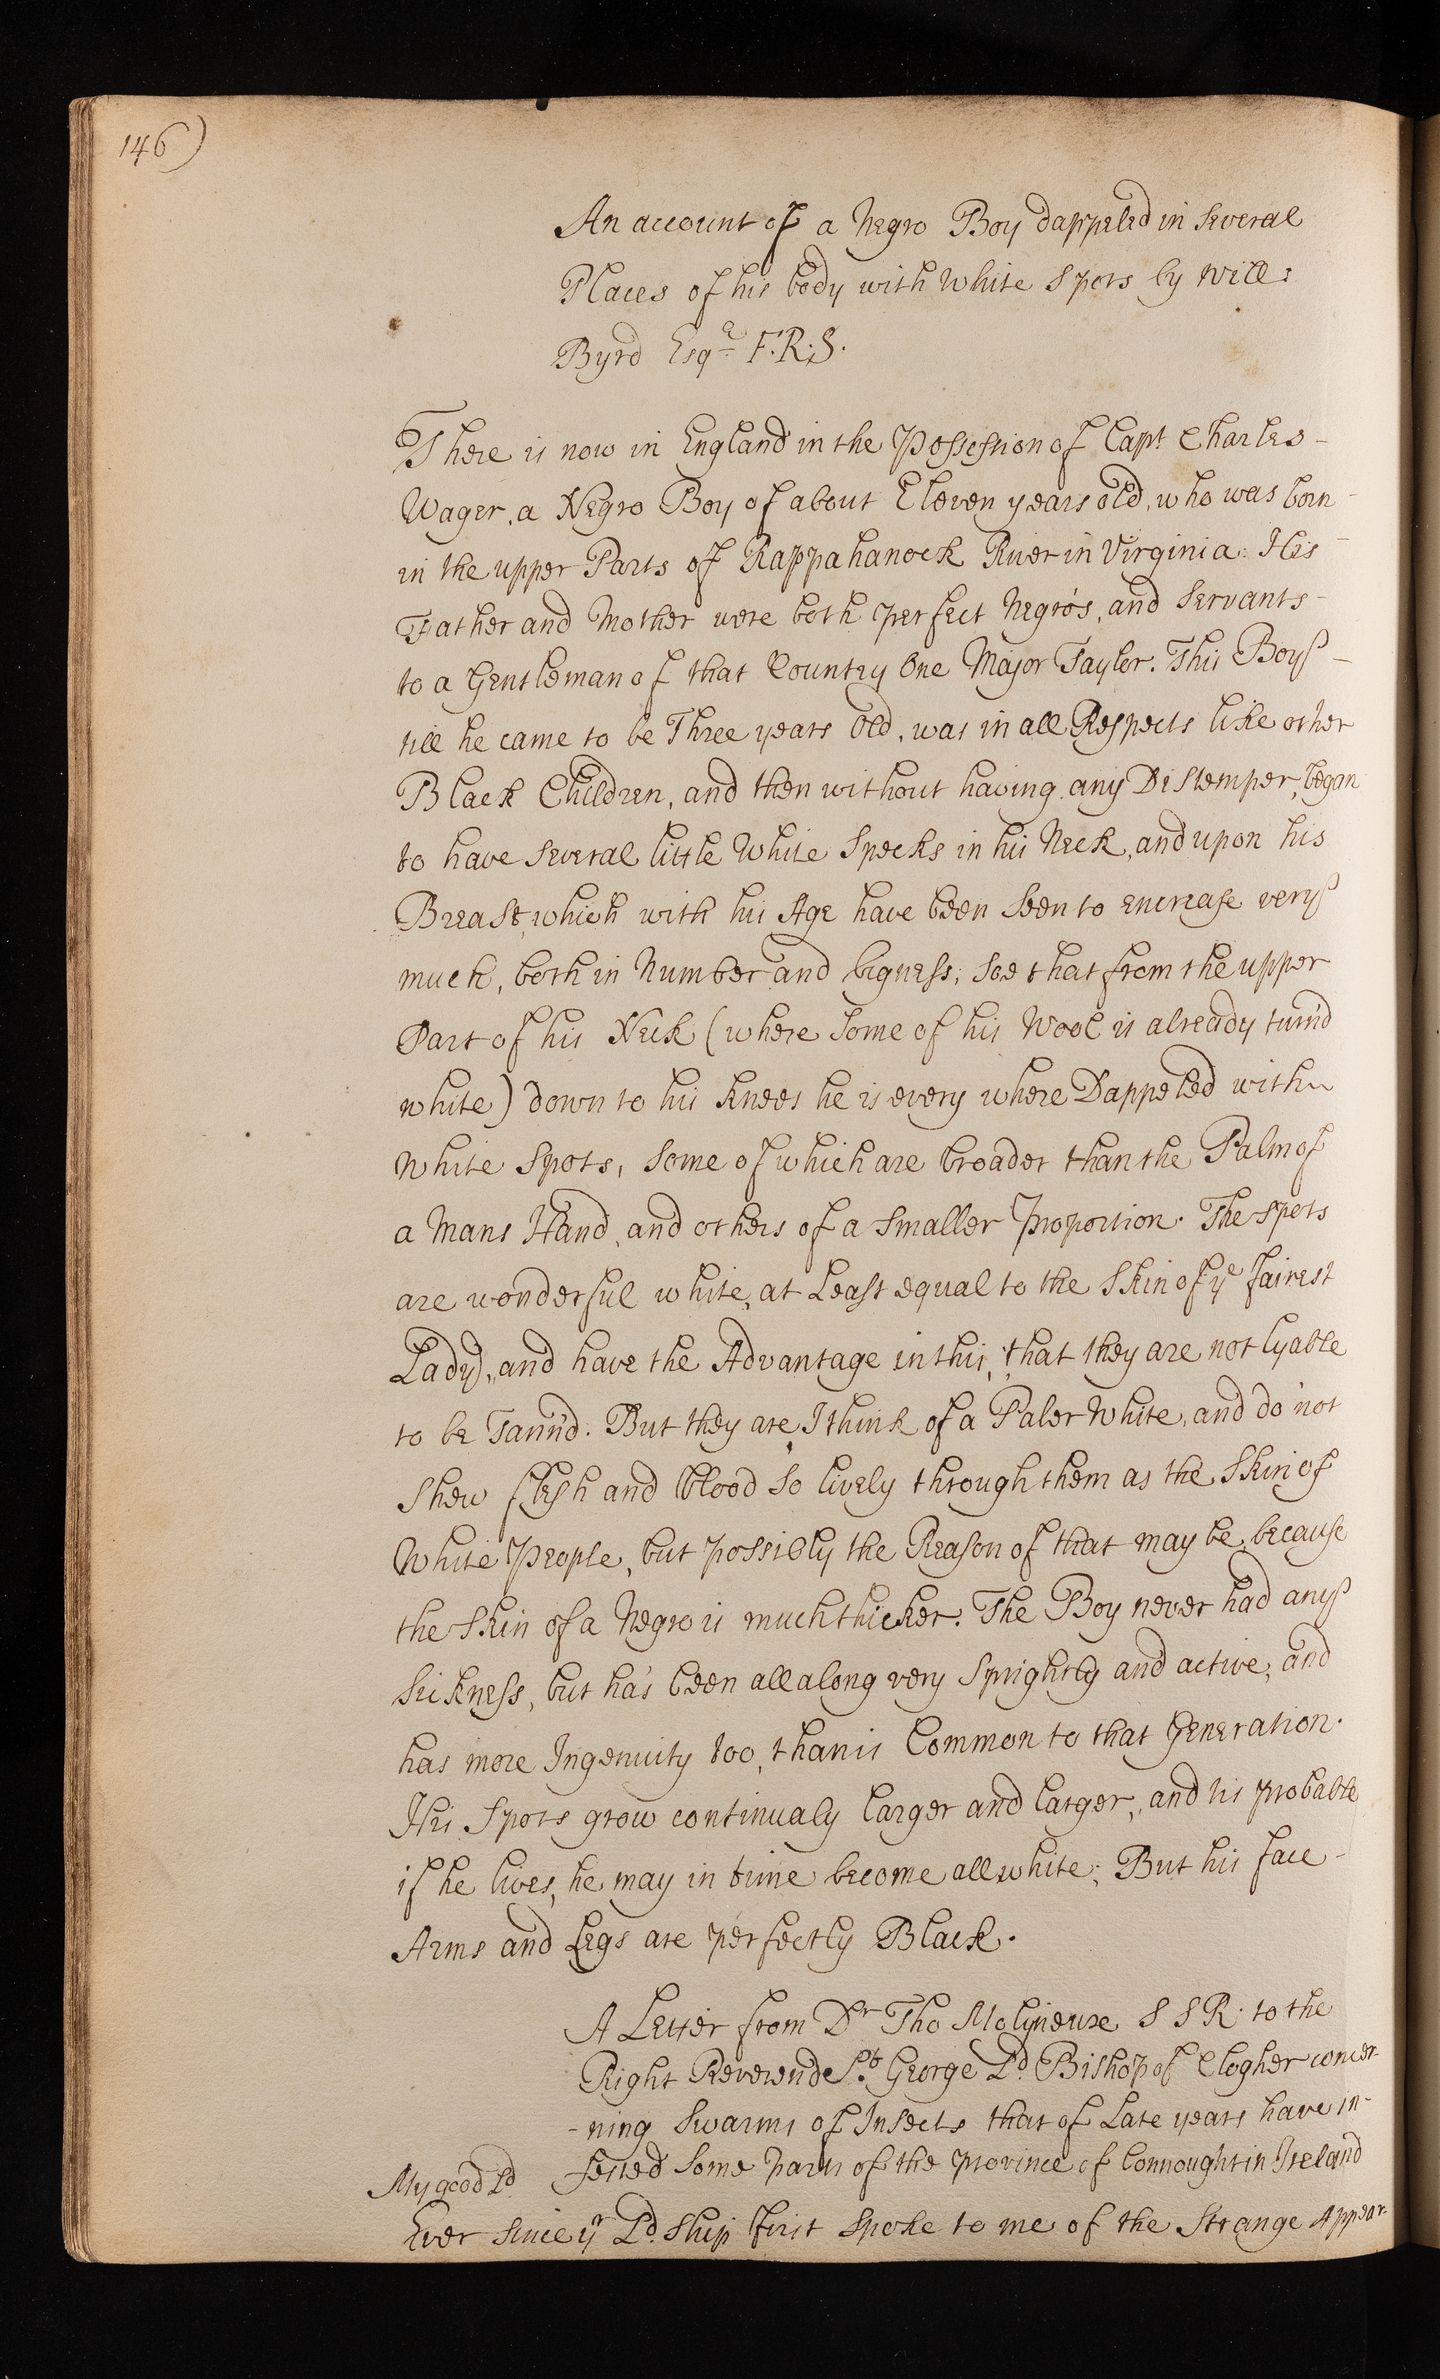 146)
An account of a Negro Boy dappeled in several
Places of his body with White Spots by Will:
Byrd Esqr F.R.S.
There is now in England in the Possession of Capt Charles
Wager, a Negro Boy of about Eleven years old, who was born
in the upper Parts of Rappahanock River in Virginia. His
Father and Mother were both perfect Negro's, and Servants
to a Gentleman of that Country One Major Taylor. This Boy
till he came to be Three years Old, was in all Respects like other
Black Children, and then without having any Distemper, began
to have several little White Specks in his Neck, and upon his
Breast, which with his Age have been seen to encrease very
much, both in Number and bigness; soe that from the upper
Part of his Neck (where some of his Wool is already turn'd
white) down to his knees he is every where Dappeled with
White Spots, some of which are broader than the Palm of
a Mans Hand, and others of a smaller Proportion. The spots
are wonderful white, at Least equal to the Skin of ye fairest
Lady, and have the Advantage in this, that they are not lyable
to be Tann'd. But they are I think of a Paler White, and do not
shew flesh and blood so lively through them as the Skin of
White People, but possibly the Reason of that may be, because
the Skin of a Negro is much thicker. The Boy never had any
sickness, but has been all along very Sprightly and active, and
has more Ingenuity too, than is Common to that Generation.
His Spots grow continualy larger and larger, and tis probable
if he lives, he may in time become all white; But his face
Arms and Legs are perfectly Black.
A Letter from Dr Tho Molyneuxe S S R. to the
Right Reverend St. George Ld. Bishop of Clogher concer-
-ning swarms of Insects that of Late years have in-
fested some parts of the province of Connought in Ireland
My good Ld
Ever since yr Ld.ship first spoke to me of the Strange Appear-